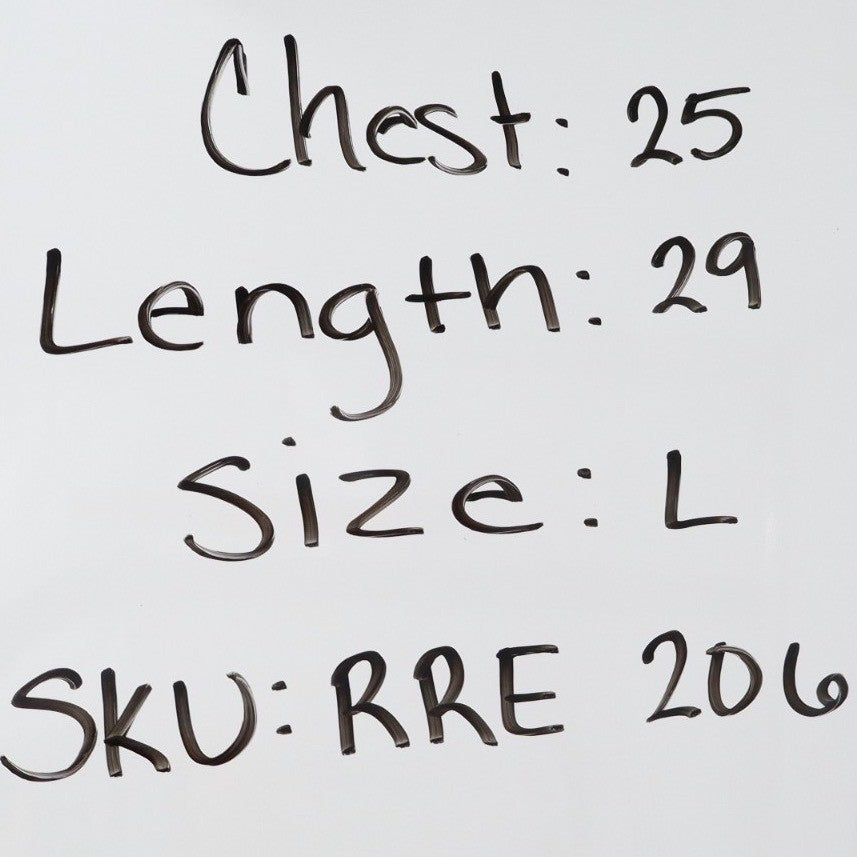 Chest: 25
Length: 29
Size: L
SKU: RRE 206